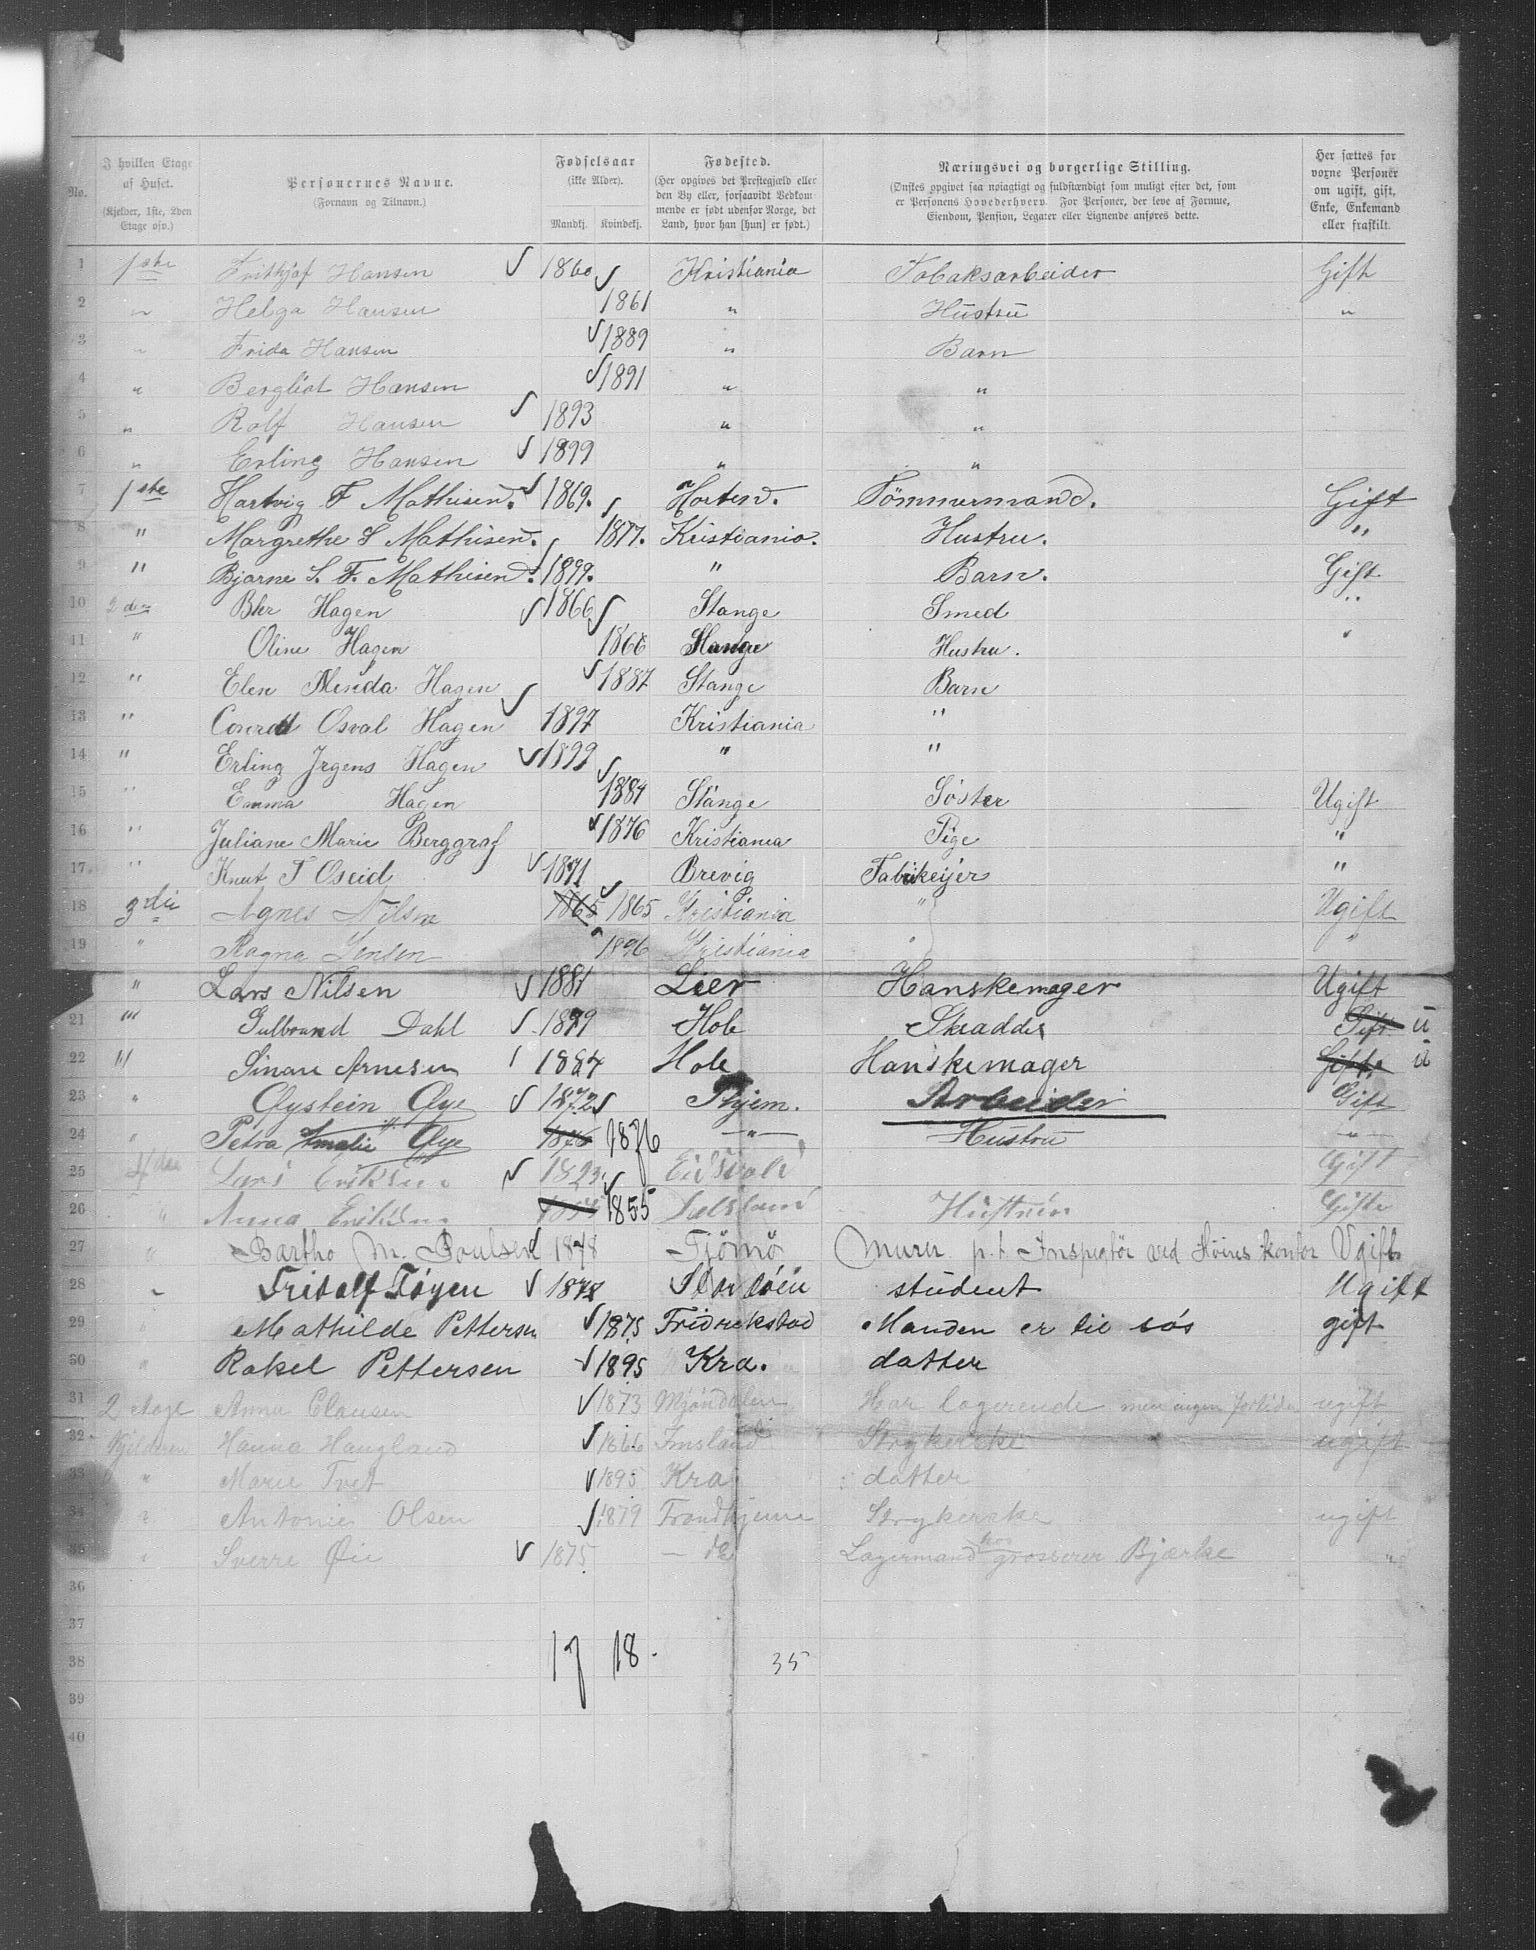 No. | I hvilken Etage af Huset. (Kjelder, 1ste, 2den Etage osv.) | Personernes Navne. (Fornavn og Tilnavn.) | Fødselsaar (ikke Alder). Mandkj. Kvindekj. | Fødested. (Her opgives det Prestegjæld eller den By eller, forsaavidt Vedkommende er født udenfor Norge, det Land, hvor han [hun] er født.) | Næringsvei og borgerlige Stilling. (Ønskes opgivet saa nøiagtigt og fuldstændigt som muligt efter det, som er Personens Hovederhverv. For Personer, der leve af Formue, Eiendom, Pension, Legater eller Lignende anføres dette. | Her sættes for voxne Personer om ugift, gift, Enke, Enkemand eller fraskilt.
1 1ste Frithjof Hansen 1860 Kristiania Tobaksarbeider Gift
2 " Helga Hansen 1861 " Hustru "
3 " Frida Hansen 1889 " Barn
4 " Bergliot Hansen 1891 " "
5 " Rolf Hansen 1893 " "
6 " Erling Hansen 1899 " "
7 1ste Hartvig F Mathisen. 1869. Horten. Tømmermand. Gift
8 " Margrethe S Mathisen. 1877. Kristiania. Hustru. "
9 " Bjarne S. F. Mathisen. 1899. " Barn. Gift
10 2den Hagen 1866 Stange Smed "
11 " Oline Hagen 1866 Stange Hustru. "
12 " Elen Hagen 1887 Stange Barn
13 " Osval Hagen 1897 Kristiania "
14 " Erling Jrgens Hagen 1899 " "
15 " Emma Hagen 1884 Stange Søster Ugift
16 " Juliane Marie Berggraf 1876 Kristiania Pige "
17 " Knut T Oseid 1871 Brevig Fabrikeijer "
18 3die Agnes Nilsen 1865 1865 Kristiania " Ugift
19 " Ragna Jensen 1896 Kristiania " "
" Lars Nilsen 1881 Lier Hanskemager Ugift
21 " Gulbrand Dahl 1879 Hole Skadder Gift u
22 " Arnesen 1884 Hole Hanskemager Gifte u
23 " Øystein Øye 1872 Thjem. Arbeider Gift
24 " Petra Amalie Øye 1876 1876 —"— Hustru —"—
25 4de Lars Eriksen Eidsvold Gift
26 " Anna Eriksen 1855 1855 Hustru Gifte
27 " Bartho M. Poulsen 1878 Tjømø Murer p.t. Inspektør ved kontor Ugift
28 " Fritolf Tøyen 1878 Stordøen student Ugift
29 " Mathilde Pettersen 1875 Fridrekstad Manden er til søs gift
30 " Rakel Pettersen 1895 Kra. datter
31 2 Etage Anna Clausen 1873 Mjøndalen Har logerende men ingen ugift
32 Kjelderen Hanna Haugland 1866 Imsland Strykerske ugift
33 " Marie Tvet 1895 Kra datter
34 " Antonie Olsen 1879 Trondhjem Strykerske ugift
35 " Sverre Øie 1875 — do Lagermand hos grosserer Bjerke "
36
37
38 17 18. 35
39
40